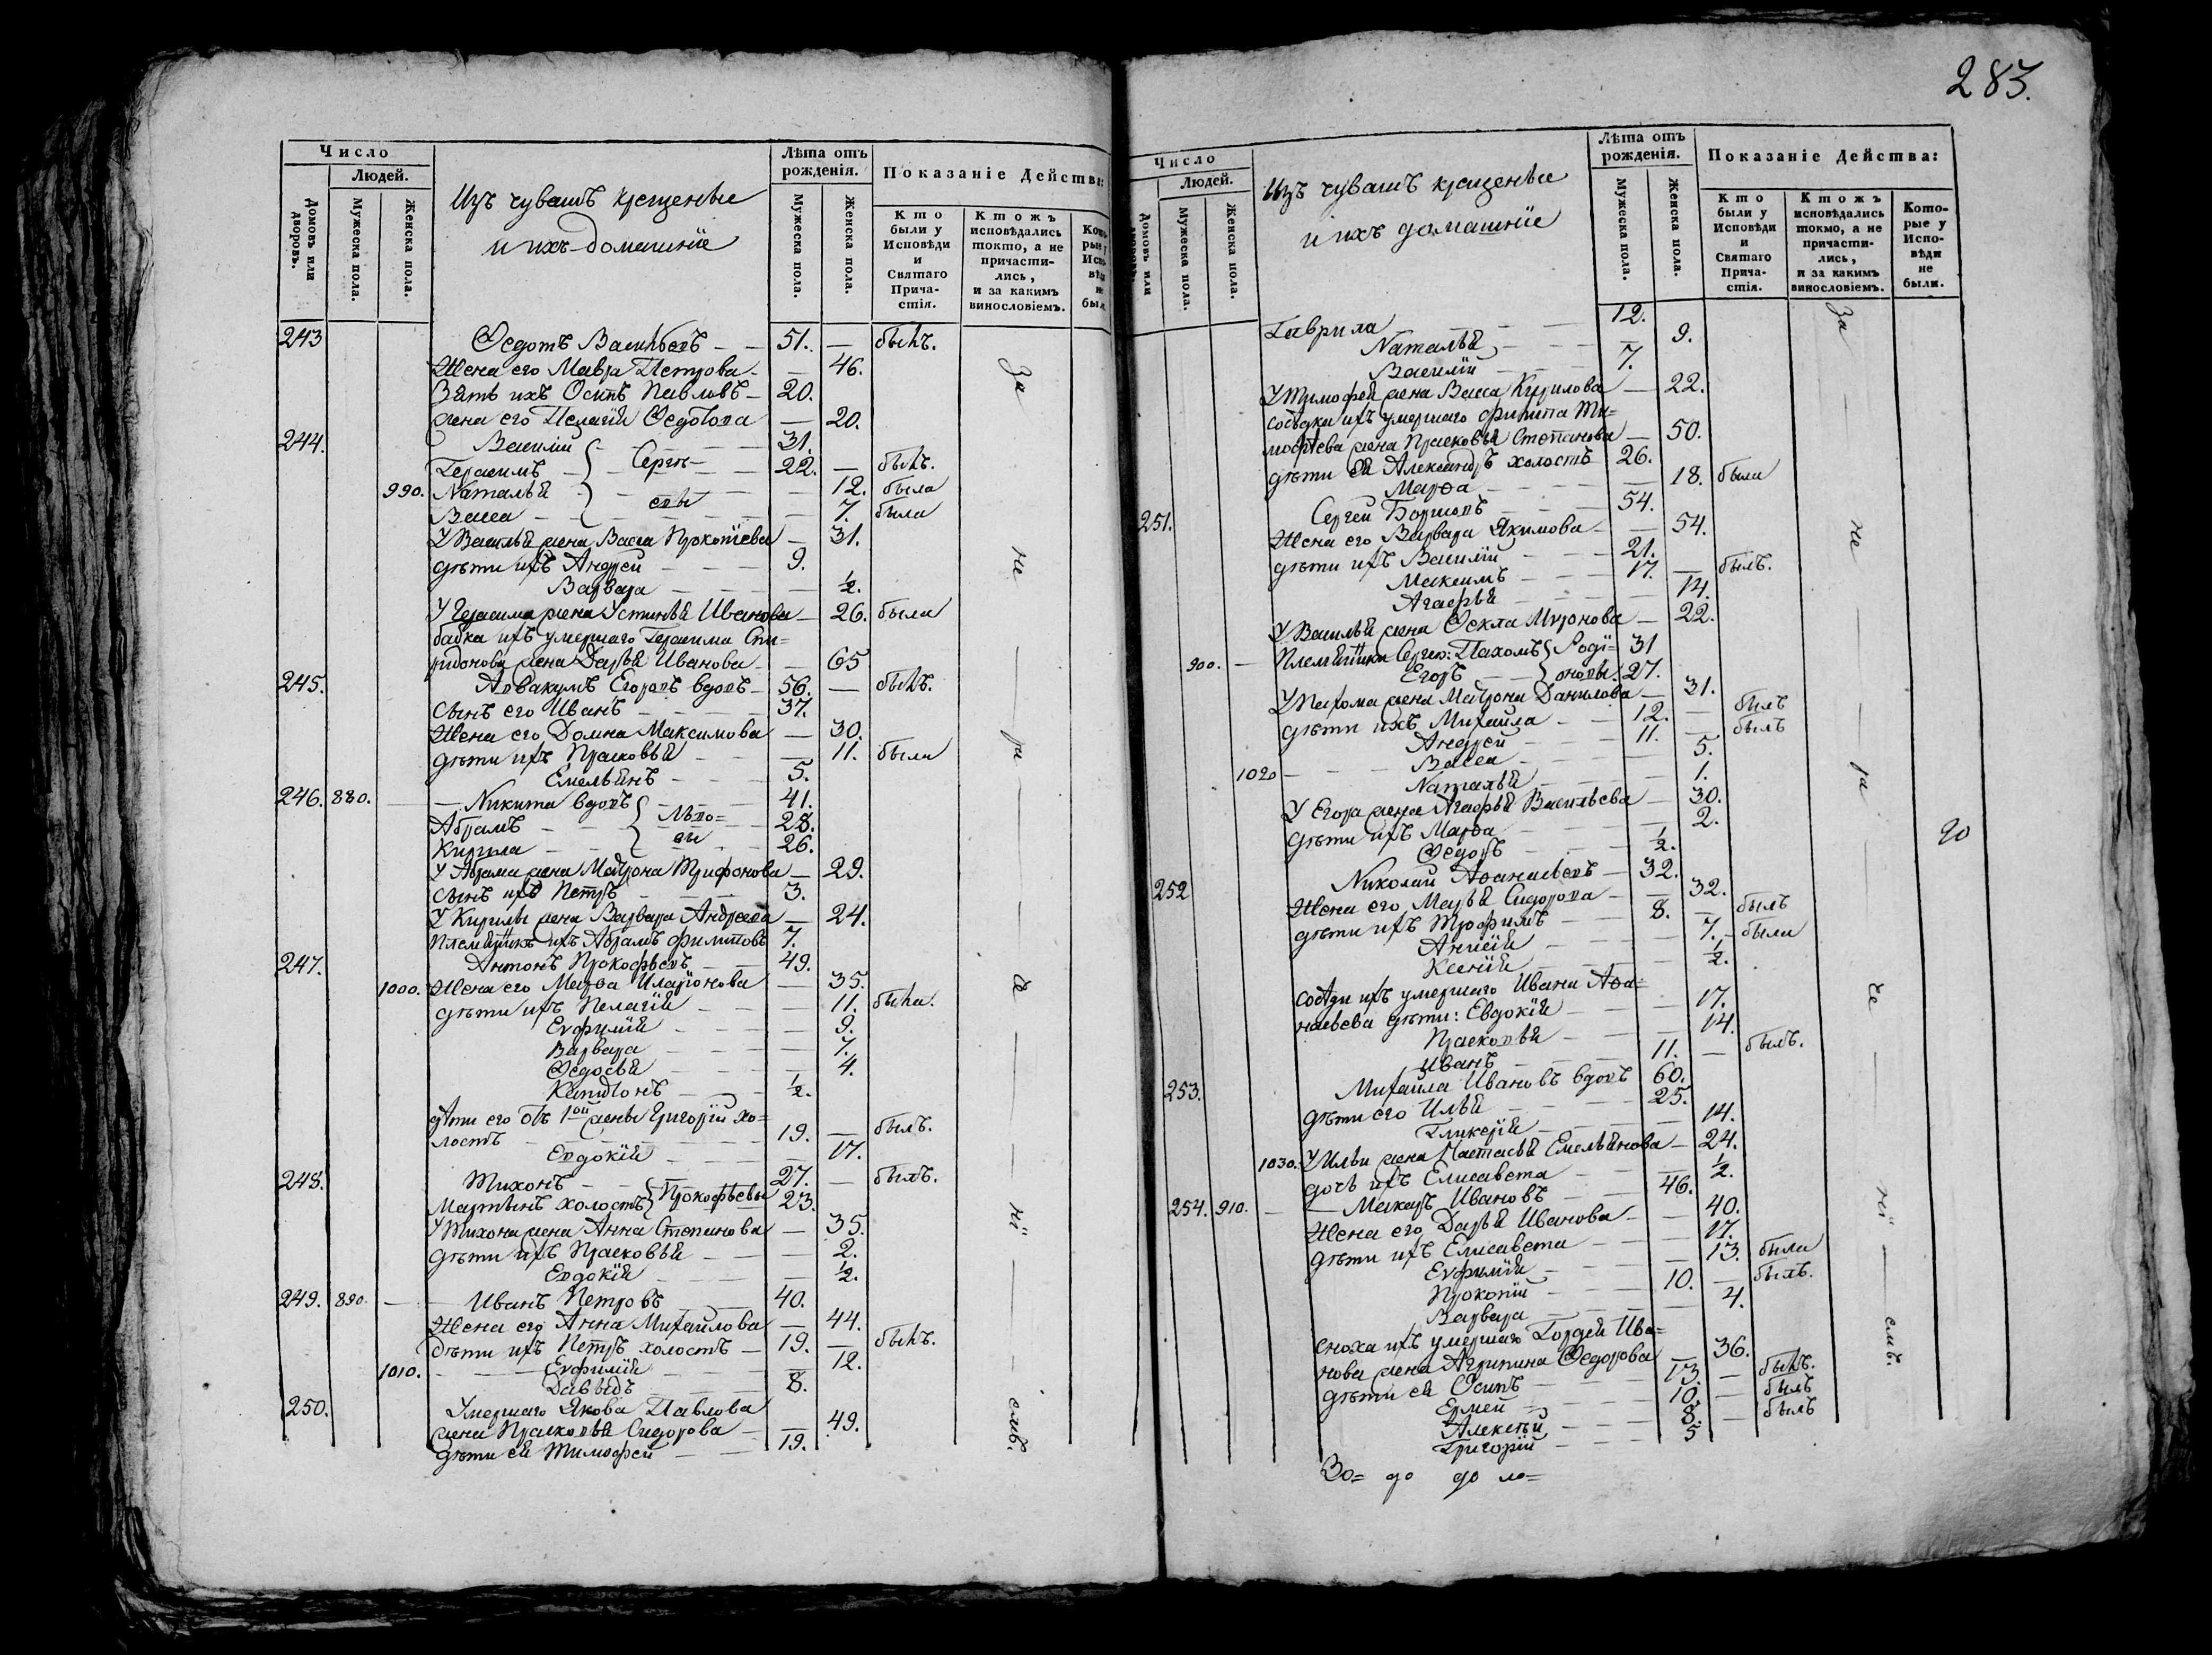 283.
Число
Людей.
Домовъ или дворовъ.
Мужеска пола.
Женска пола.
Изъ чувашъ крещеные
и ихъ домашніе
Лѣта отъ рожденія.
Мужеска пола.
Женска пола.
Показаніе Действа:
Кто были у Исповѣди и Святаго Причастія.
Ктожъ исповѣдались токмо, а не причастились, и за какимъ винословіемъ.
243 Ѳедотъ Васильевъ 51. былъ.
Жена его Мавра Петрова 46.
Зять ихъ Осипъ Павловъ 20.
жена его Пелагія Ѳедотова 20.
244. Василій Сергѣ= 31.
Герасимъ 22. былъ.
990. Наталья евы 12. была
Васса 7. была
У Василья жена Васса Прокопіева 31.
дѣти ихъ Андрей 9.
Варвара ½.
У Герасима жена Устинья Иванова 26. была
бабка ихъ умершаго Герасима Спи=
ридонова жена Дарья Иванова 65
245. Аввакумъ Егоровъ вдовъ 56. былъ.
Сынъ его Иванъ 37.
Жена его Домна Максимова 30.
дѣти ихъ Прасковья 11. была
Емельянъ 5.
246. 880. Никита вдовъ 41.
Абрамъ Льво= 28.
Кирила вы 26.
У Абрама жена Матрона Трифонова 29.
Сынъ ихъ Петръ 3.
У Кирилы жена Варвара Андреева 24.
Племянникъ ихъ Абрамъ Филиповъ 7.
247. Антонъ Прокофьевъ 49.
1000. Жена его Марѳа Иларіонова 35.
дѣти ихъ Пелагія 11. была.
Евфимія 9.
Варвара 7.
Ѳедосья 4.
Капитонъ ½.
дѣти его отъ 1ой жены Григорій хо=
лостъ 19. былъ.
Евдокія 17.
248. Тихонъ Прокофьевы 27. былъ.
Мартынъ холостъ 23.
У Тихона жена Анна Степанова 35.
дѣти ихъ Прасковья 2.
Евдокія ½.
249. 890. Иванъ Петровъ 40.
Жена его Анна Михайлова 44.
Дѣти ихъ Петръ холостъ 19. былъ.
1010. Евфимія 12.
Давыдъ 8.
250. Умершаго Якова Павлова
жена Прасковья Сидорова 49.
дѣти ея Тимофей 19.
За не ра че ні емъ.
Число
Людей.
Домовъ или
Мужеска пола.
Женска пола.
Изъ чувашъ крещеные
и ихъ домашніе
Лѣта отъ рожденія.
Мужеска пола.
Женска пола.
Показаніе Действа:
Кто были у Исповѣди и Святаго Причастія.
Ктожъ исповѣдались токмо, а не причастились, и за какимъ винословіемъ.
Которые у Исповѣди не были.
Гаврила 12.
Наталья 9.
Василій 7.
У Тимофея жена Васса Кирилова 22.
сосѣдка ихъ умершаго Филипа Ти=
мофѣева жена Прасковья Степанова 50.
дѣти ея Александръ холостъ 26.
Марѳа 18. была
251. Сергей Борисовъ 54.
Жена его Варвара Якимова 54.
дѣти ихъ Василій 21.
Максимъ 17. былъ.
Агафья 14.
У Василья жена Ѳекла Миронова 22.
900. Племянники Сергея: Пахомъ Родї= 31
Егоръ оновы 27.
У Пахома жена Матрона Данилова 31.
дѣти ихъ Михайла 12. былъ
Андрей 11. былъ
Васса 5.
1020 Наталья 1.
У Егора жена Агафья Васильева 30.
Дѣти ихъ Марѳа 2.
Ѳедотъ ½.
252 Николай Аѳанасьевъ 32.
Жена его Марья Сидорова 32.
дѣти ихъ Трофимъ 8. былъ
Анисія 7. была
Ксенія ½.
Сосѣди ихъ умершаго Ивана Аѳа=
насьева дѣти: Евдокія 17.
Прасковья 14.
Иванъ 11. былъ.
253. Михайла Ивановъ вдовъ 60.
дѣти его Илья 25.
Гликерія 14.
1030. У Ильи жена Настасья Емельянова 24.
дочь ихъ Елисавета ½.
254. 910. Макаръ Ивановъ 46.
Жена его Дарья Иванова 40.
дѣти ихъ Елисавета 17.
Евфимія 13. была
Прокопій 10. былъ.
Варвара 4.
сноха ихъ умершаго Гордея Ива=
нова жена Агрипина Ѳедорова 36.
дѣти ея Осипъ 13. былъ.
Ермей 10. былъ
Алексѣй 8. былъ
Григорій 5
За не ра че ні емъ.